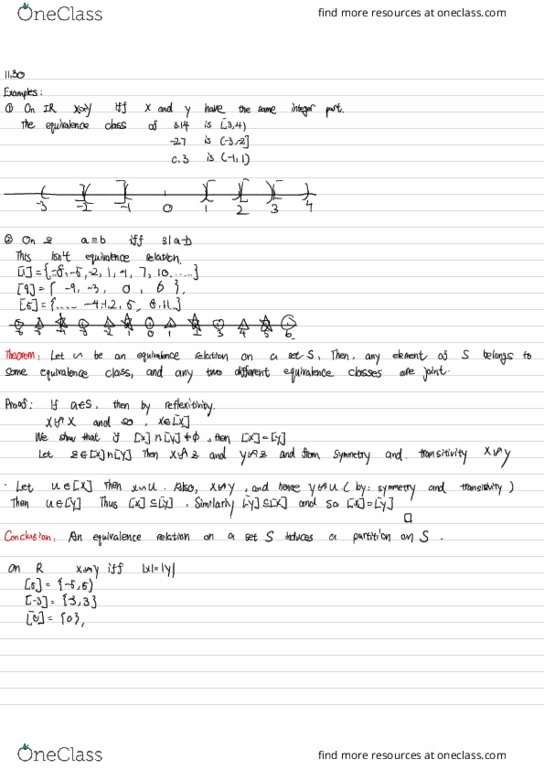 OneClass
find more resources at oneclass.com
11.30
Examples:
① On IR x∾y iff x and y have the same integer part.
The equivalence class of 3.14 is [3,4)
-2.7 is (-3,-2]
0.3 is (-1,1)
-3 -2 -1 0 1 2 3 4
② On Z a≡b iff 3|a-b
This isn't equivalence relation.
[1]={-8,-5,-2, 1, 4, 7, 10.....}
[9]={ -9, -3, 0, 6 },
[5]={.... -4,-1,2, 5, 8,11..}
Theorem: Let ∾ be an equivalence relation on a set S, Then, any element of S belongs to
some equivalence class, and any two different equivalence classes are joint.
Proof: If a∈S, then by reflexitivity.
x∾x and so, x∈[x]
We show that if [x]∩[y]≠ϕ, then [x]=[y]
Let z∈[x]∩[y] Then x∾z and y∾z and from symmetry and transitivity x∾y
· Let u∈[x] Then x∾u. Also, x∾y, and hence y∾u ( by: symmetry and transitivity )
Then u∈[y] Thus [x]⊆[y]. Similarly [y]⊆[x] and so [x]=[y]
Conclusion: An equivalence relation on a set S induces a partition on S.
On R x∾y iff |x|=|y|
[5] = {-5,5}
[-3] = {-3,3}
[0] = {0},
OneClass
find more resources at oneclass.com